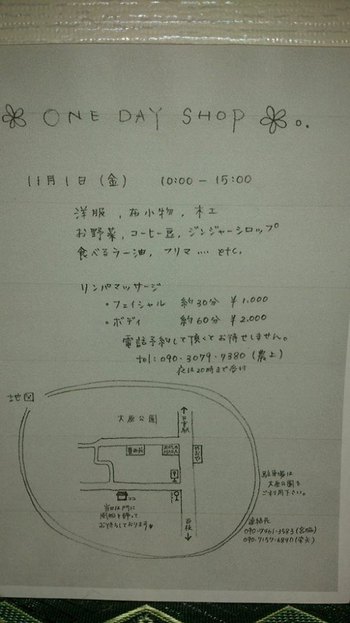 ONE DAY SHOP
11月1日(金) 10:00 - 15:00
洋服, 布小物, 木工
お野菜, コーヒー豆, ジンジャーシロップ
食べるラー油, フリマ .... etc.
リンパマッサージ
・フェイシャル 約30分 ¥1,000
・ボディ 約60分 ¥2,000
電話予約して頂くとお待せしません。
tel: 090-3079-9380
夜は20時まで受付
地図
大原公園
駐車場は
大原公園を
ご利用下さい。
ココ
当日は門に
風船を飾って
お待ちしております
連絡先